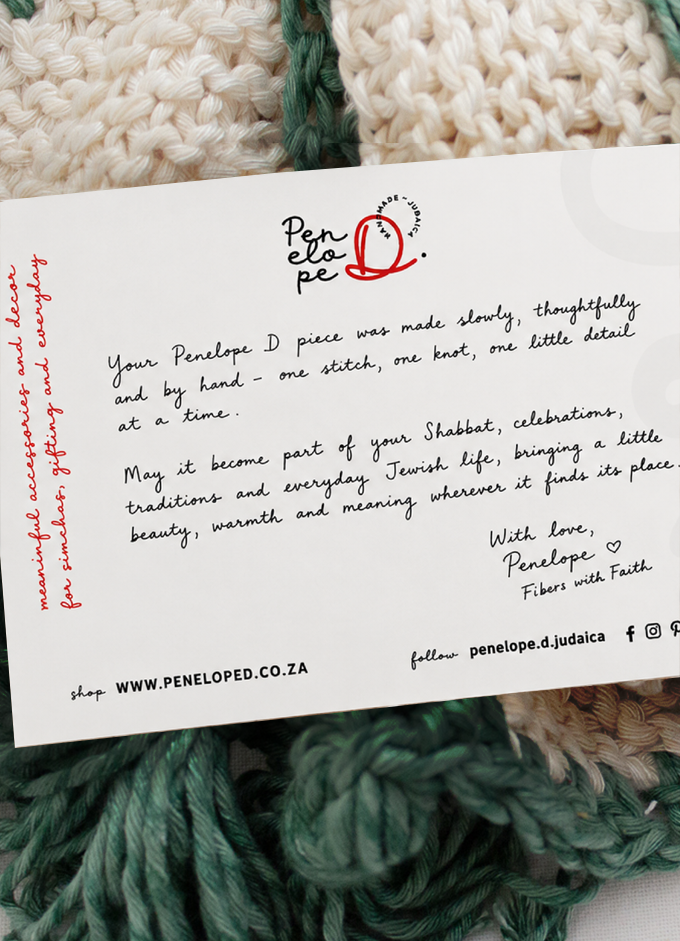 Pen
elo
pe D.
HANDMADE ~ JUDAICA
meaninful accessories and decor
for simchas, gifting and everyday
Your Penelope D piece was made slowly, thoughtfully
and by hand – one stitch, one knot, one little detail
at a time.
May it become part of your Shabbat, celebrations,
traditions and everyday Jewish life, bringing a little
beauty, warmth and meaning wherever it finds its place.
With love,
Penelope ♡
Fibers with Faith
shop WWW.PENELOPED.CO.ZA
follow penelope.d.judaica